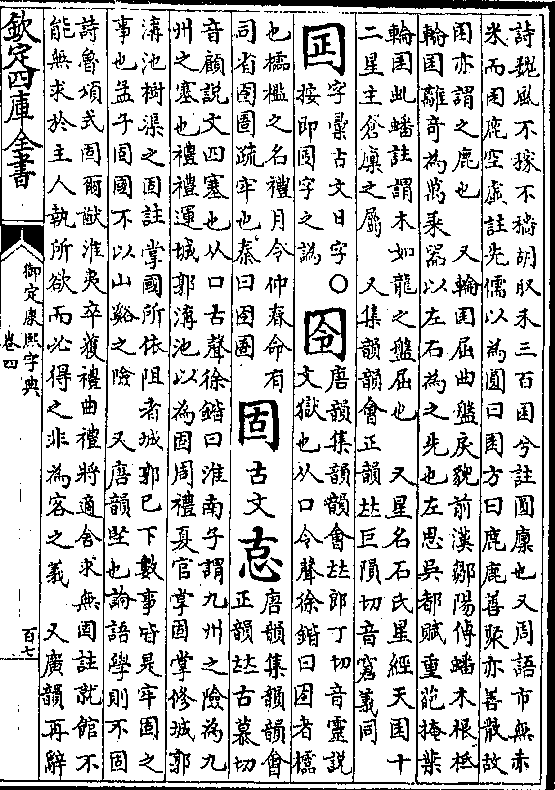 詩魏風不稼不穡胡取禾三百囷兮註圓廩也又周語市無赤
米而囷鹿空虛註先儒以為圓曰囷方曰鹿鹿善聚亦善散故
囷亦謂之鹿也　又輪囷屈曲盤戾貌前漢鄒陽傳蟠木根柢
輪囷離奇為萬乘器以左右為之先也左思吳都賦重葩掩葉
輪囷虬蟠註謂木如龍之盤屈也　又星名石氏星經天囷十
二星主倉廩之屬　又集韻韻會正韻𠀤巨隕切音窘義同
囸
字彙古文日字○
按即囸字之譌
囹
唐韻集韻韻會𠀤郎丁切音靈說
文獄也从口令聲徐鍇曰囹者櫺
也櫺檻之名禮月令仲春命有
司省囹圄疏牢也秦曰囹圄
固
古文
𢛢
唐韻集韻韻會
正韻𠀤古慕切
音顧說文四塞也从口古聲徐鍇曰淮南子謂九州之險為九
州之塞也禮禮運城郭溝池以為固周禮夏官掌固掌修城郭
溝池樹渠之固註掌國所依阻者城郭已下數事皆是牢固之
事也孟子固國不以山谿之險　又唐韻堅也論語學則不固
詩魯頌式固爾猷淮夷卒獲禮曲禮將適舍求無固註就館不
能無求於主人執所欲而必得之非為客之義　又廣韻再辭
欽定四庫全書
御定康熙字典
卷四
百七